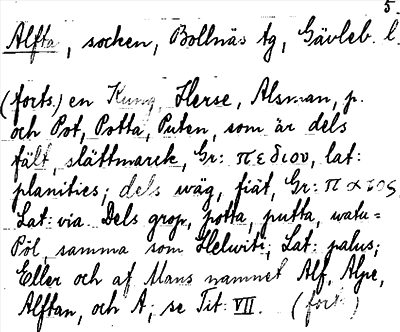 5.
Alfta, socken, Bollnäs tg, Gävleb. l.
(forts.) en Kung, Herse, Alsman, p.
och Pot, Potta, Puten, som är dels
fält, slättmarck, Gr: πεδιον, lat:
planities; dels wäg, fiät, Gr: πατος,
Lat: via. Dels grop, potta, putta, watu=
Pöl, samma som Helwiti; Lat: palus;
Eller och af Mans namnet Alf, Alpe,
Alftan, och A; se Tit: VII. (fort.)